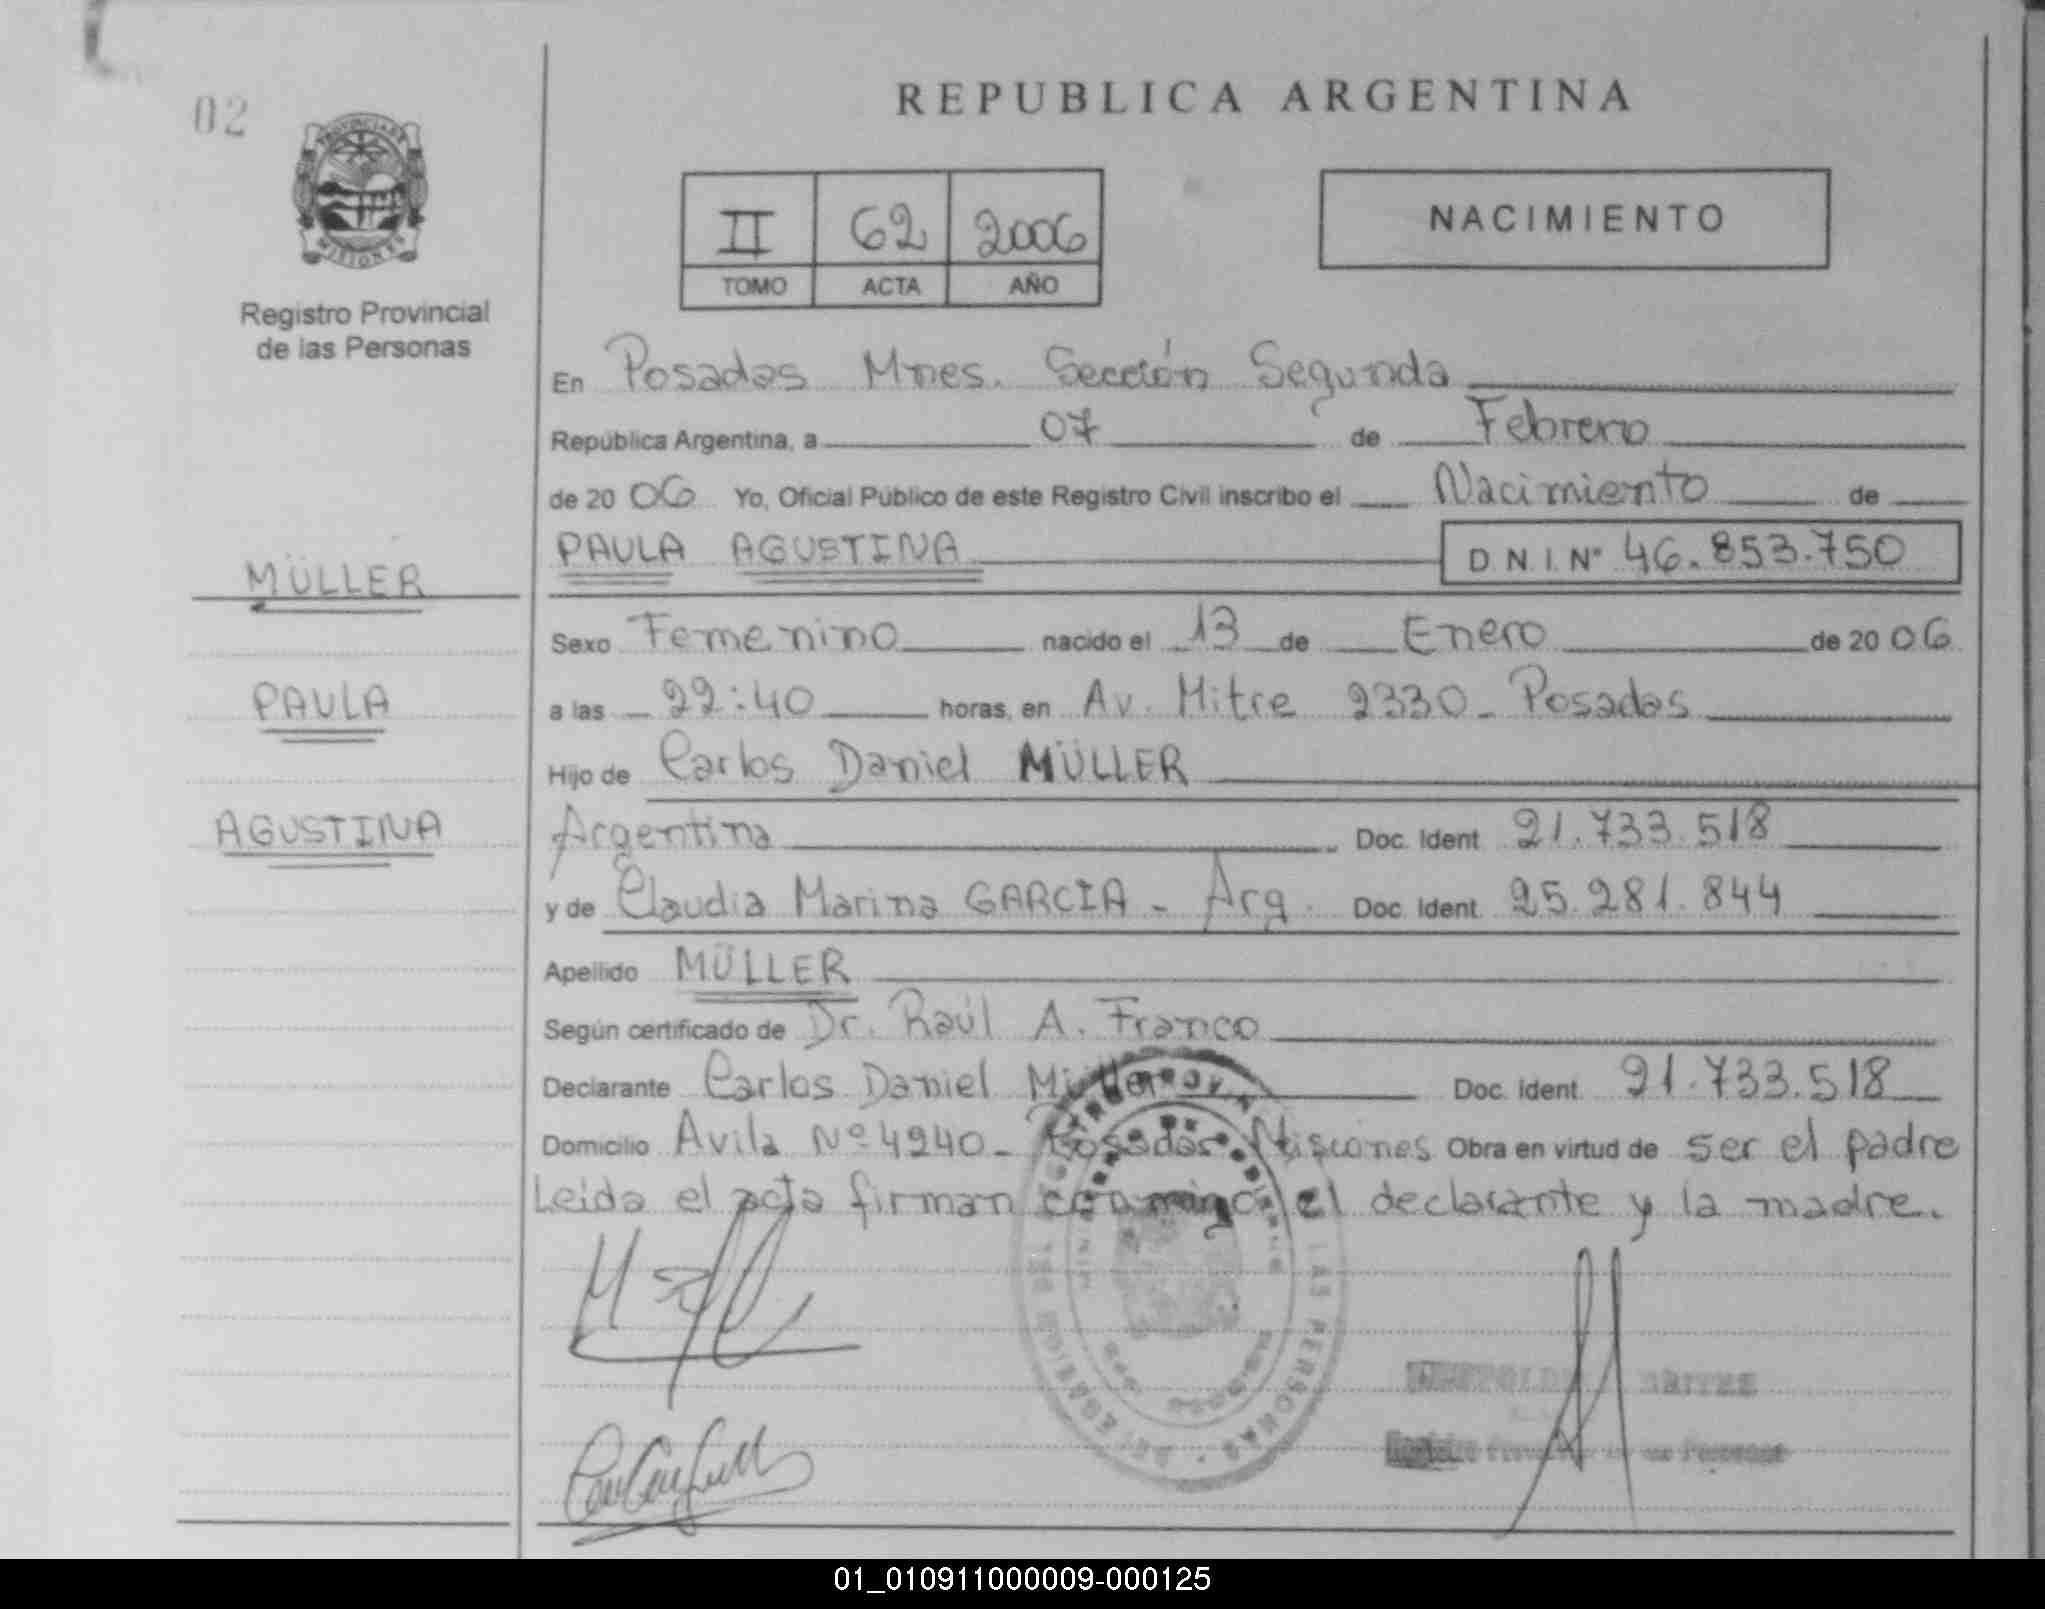 02
PROVINCIA DE
MISIONES
Registro Provincial
de las Personas
MÜLLER
PAULA
AGUSTINA
REPUBLICA ARGENTINA
II 62 2006
TOMO ACTA AÑO
NACIMIENTO
En Posadas Mnes. Sección Segunda
República Argentina, a 07 de Febrero
de 20 06 Yo, Oficial Público de este Registro Civil inscribo el Nacimiento de
PAULA AGUSTINA D.N.I. Nº 46.853.750
Sexo Femenino nacido el 13 de Enero de 20 06
a las 22:40 horas, en Av. Mitre 2330 - Posadas
Hijo de Carlos Daniel MÜLLER
Argentina Doc. Ident. 21.733.518
y de Claudia Marina GARCIA - Arg. Doc. Ident. 25.281.844
Apellido MÜLLER
Según certificado de Dr. Raúl A. Franco
Declarante Carlos Daniel Müller Doc. Ident. 21.733.518
Domicilio Avila Nº 4240 - Posadas Misiones Obra en virtud de ser el padre
Leida el acta firman conmigo el declarante y la madre.
LAS PERSONAS
01_010911000009-000125